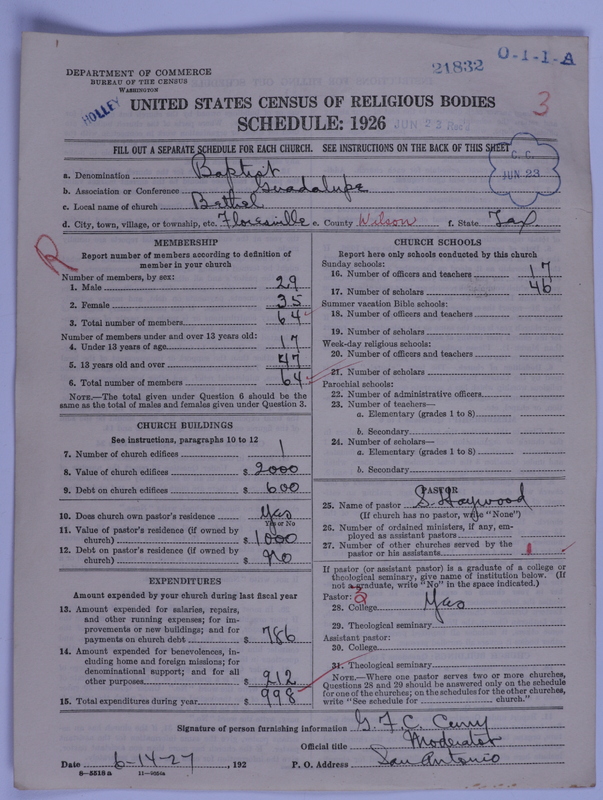 21832
O-1-1-A
DEPARTMENT OF COMMERCE
BUREAU OF THE CENSUS
WASHINGTON
HOLLEY
UNITED STATES CENSUS OF RELIGIOUS BODIES
3
SCHEDULE: 1926
JUN 23 Rec'd
FILL OUT A SEPARATE SCHEDULE FOR EACH CHURCH. SEE INSTRUCTIONS ON THE BACK OF THIS SHEET
C. C.
JUN 23
a. Denomination Baptist
b. Association or Conference Guadalupe
c. Local name of church Bethel
d. City, town, village, or township, etc. Floresville e. County Wilson f. State Tax.
R
MEMBERSHIP
Report number of members according to definition of
member in your church
Number of members, by sex:
1. Male 29
2. Female 35
3. Total number of members 64
Number of members under and over 13 years old:
4. Under 13 years of age 17
5. 13 years old and over 47
6. Total number of members 64
NOTE.—The total given under Question 6 should be the
same as the total of males and females given under Question 3.
CHURCH BUILDINGS
See instructions, paragraphs 10 to 12
7. Number of church edifices 1
8. Value of church edifices $ 2000
9. Debt on church edifices $ 600
10. Does church own pastor's residence Yas
Yes or No
11. Value of pastor's residence (if owned by
church) $ 1000
12. Debt on pastor's residence (if owned by
church) $ No
EXPENDITURES
Amount expended by your church during last fiscal year
13. Amount expended for salaries, repairs,
and other running expenses; for im-
provements or new buildings; and for
payments on church debt $ 786
14. Amount expended for benevolences, in-
cluding home and foreign missions; for
denominational support; and for all
other purposes $ 212
15. Total expenditures during year $ 998
CHURCH SCHOOLS
Report here only schools conducted by this church
Sunday schools:
16. Number of officers and teachers 17
17. Number of scholars 46
Summer vacation Bible schools:
18. Number of officers and teachers
19. Number of scholars
Week-day religious schools:
20. Number of officers and teachers
21. Number of scholars
Parochial schools:
22. Number of administrative officers
23. Number of teachers—
a. Elementary (grades 1 to 8)
b. Secondary
24. Number of scholars—
a. Elementary (grades 1 to 8)
b. Secondary
PASTOR
25. Name of pastor S. Haywood
(If church has no pastor, write "None")
26. Number of ordained ministers, if any, em-
ployed as assistant pastors
27. Number of other churches served by the
pastor or his assistants 1
If pastor (or assistant pastor) is a graduate of a college or
theological seminary, give name of institution below. (If
not a graduate, write "No" in the space indicated.)
Pastor:
28. College Yas
29. Theological seminary
Assistant pastor:
30. College
31. Theological seminary
NOTE.—Where one pastor serves two or more churches,
Questions 28 and 29 should be answered only on the schedule
for one of the churches; on the schedules for the other churches,
write "See schedule for church."
Signature of person furnishing information G. F. C. Curry
Official title Moderator
Date 6-14-27, 192 P. O. Address San Antonio
8-5518 a